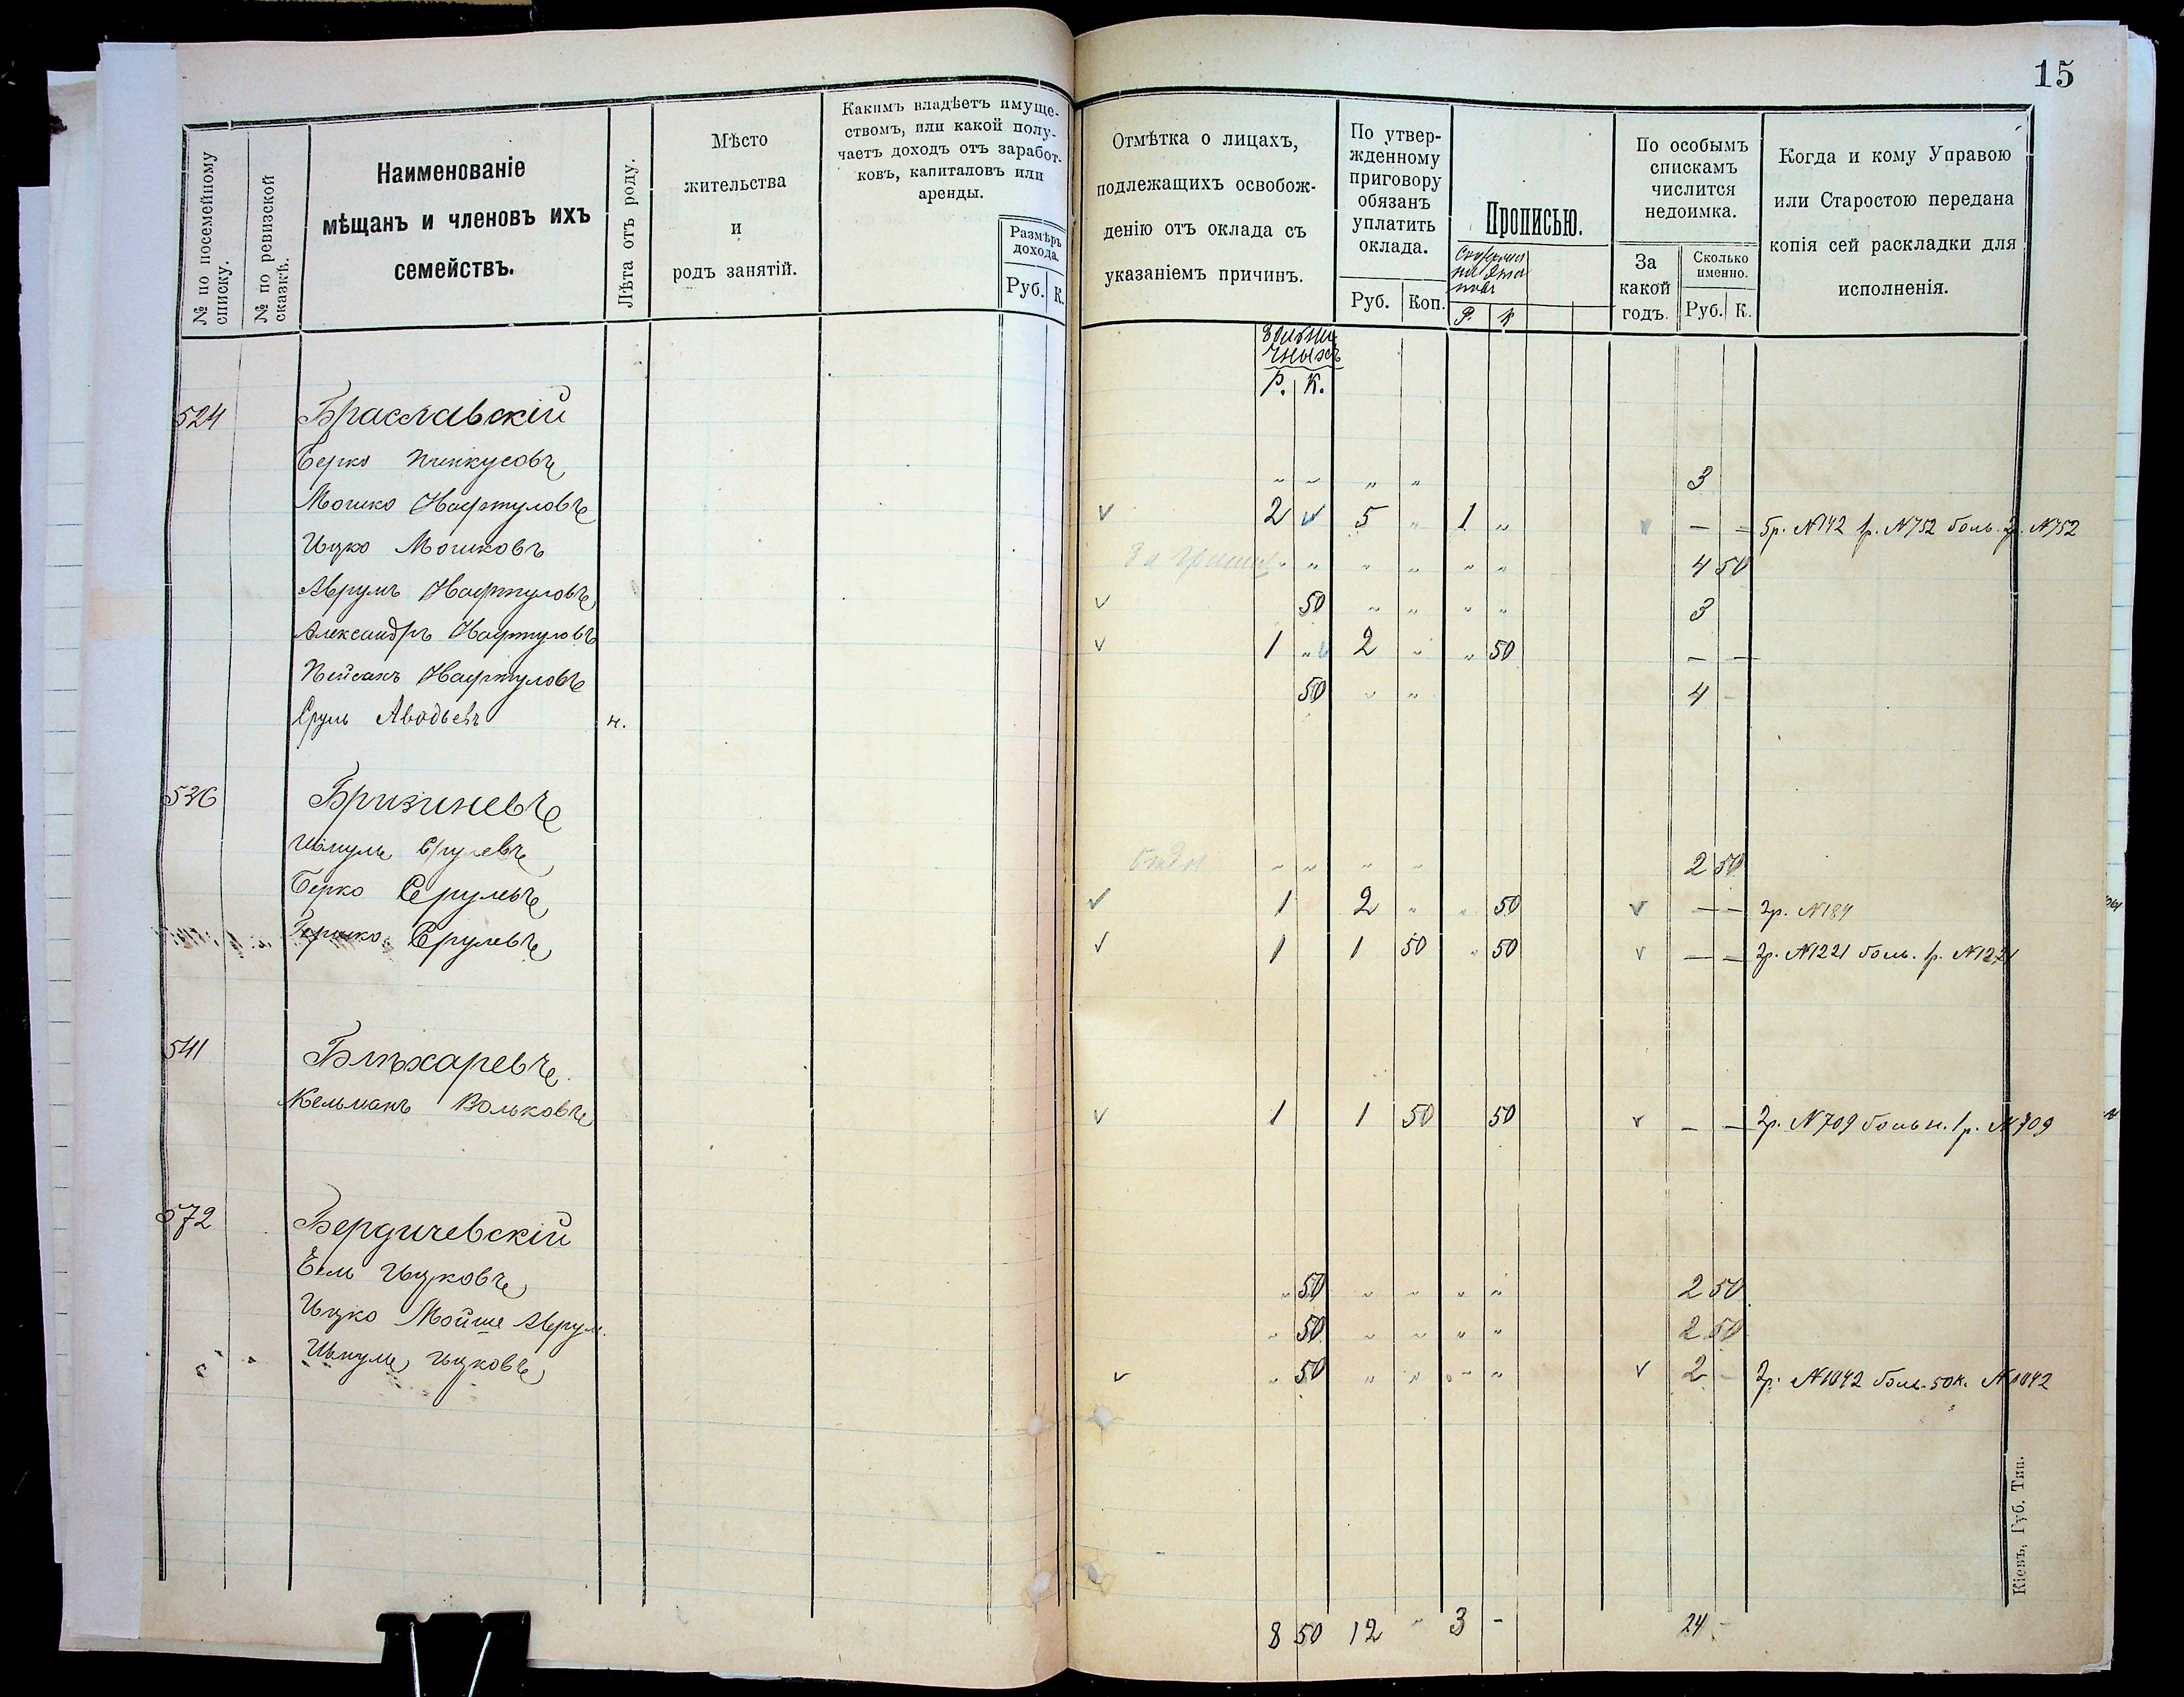 15
№ по посемейному списку.
№ по ревизской сказкѣ.
Наименованіе
мѣщанъ и членовъ ихъ
семействъ.
Лѣта отъ роду.
Мѣсто
жительства
и
родъ занятій.
Какимъ владѣетъ имуще-
ствомъ, или какой полу-
чаетъ доходъ отъ заработ-
ковъ, капиталовъ или
аренды.
Размѣръ
дохода.
Руб. К.
Отмѣтка о лицахъ,
подлежащихъ освобож-
денію отъ оклада съ
указаніемъ причинъ.
По утвер-
жденному
приговору
обязанъ
уплатить
оклада.
Руб. Коп.
Прописью.
Р. К
По особымъ
спискамъ
числится
недоимка.
За
какой
годъ.
Сколько
именно.
Руб. К.
Когда и кому Управою
или Старостою передана
копія сей раскладки для
исполненія.
Р. К.
524 Браславскій
Берко Пинкусовъ ~ ~ „ „ 3
Мошко Нафтуловъ v 2 v 5 „ 1 „ v — — 5р. №142 1р. №752 боль. 2р. №752
Ицко Мошковъ За границ „ „ „ „ „ „ 4 50
Аврумъ Нафтуловъ v 50 „ „ „ „ 3
Александръ Нафтуловъ v 1 „ v 2 „ „ 50 — —
Пейсахъ Нафтуловъ 50 „ „ 4 -
Сруль Аводьевъ н.
536 Бризиневъ
Шмуль Срулевъ ~ „ „ „ 2 50
Берко Срулевъ v 1 2 „ „ 50 v — — 2р. №184
Гершко Срулевъ v 1 1 50 „ 50 v — — 2р. №1221 боль. 1р. №1221
541 Бляхаревъ
Кельманъ Вольковъ v 1 1 50 50 v — — 2р. №709 больн. 1р. №709
572 Бердичевскій
Ель Ицковъ „ 50 „ „ „ „ 2 50
Ицко Мойше Аврум. „ 50 „ „ „ „ 2 50
Шмуль Ицковъ v „ 50 „ „ „ „ v 2 - 2р. №1042 боль. 50к. №1042
8 50 12 „ 3 - 24 -
Кіевъ, Губ. Тип.